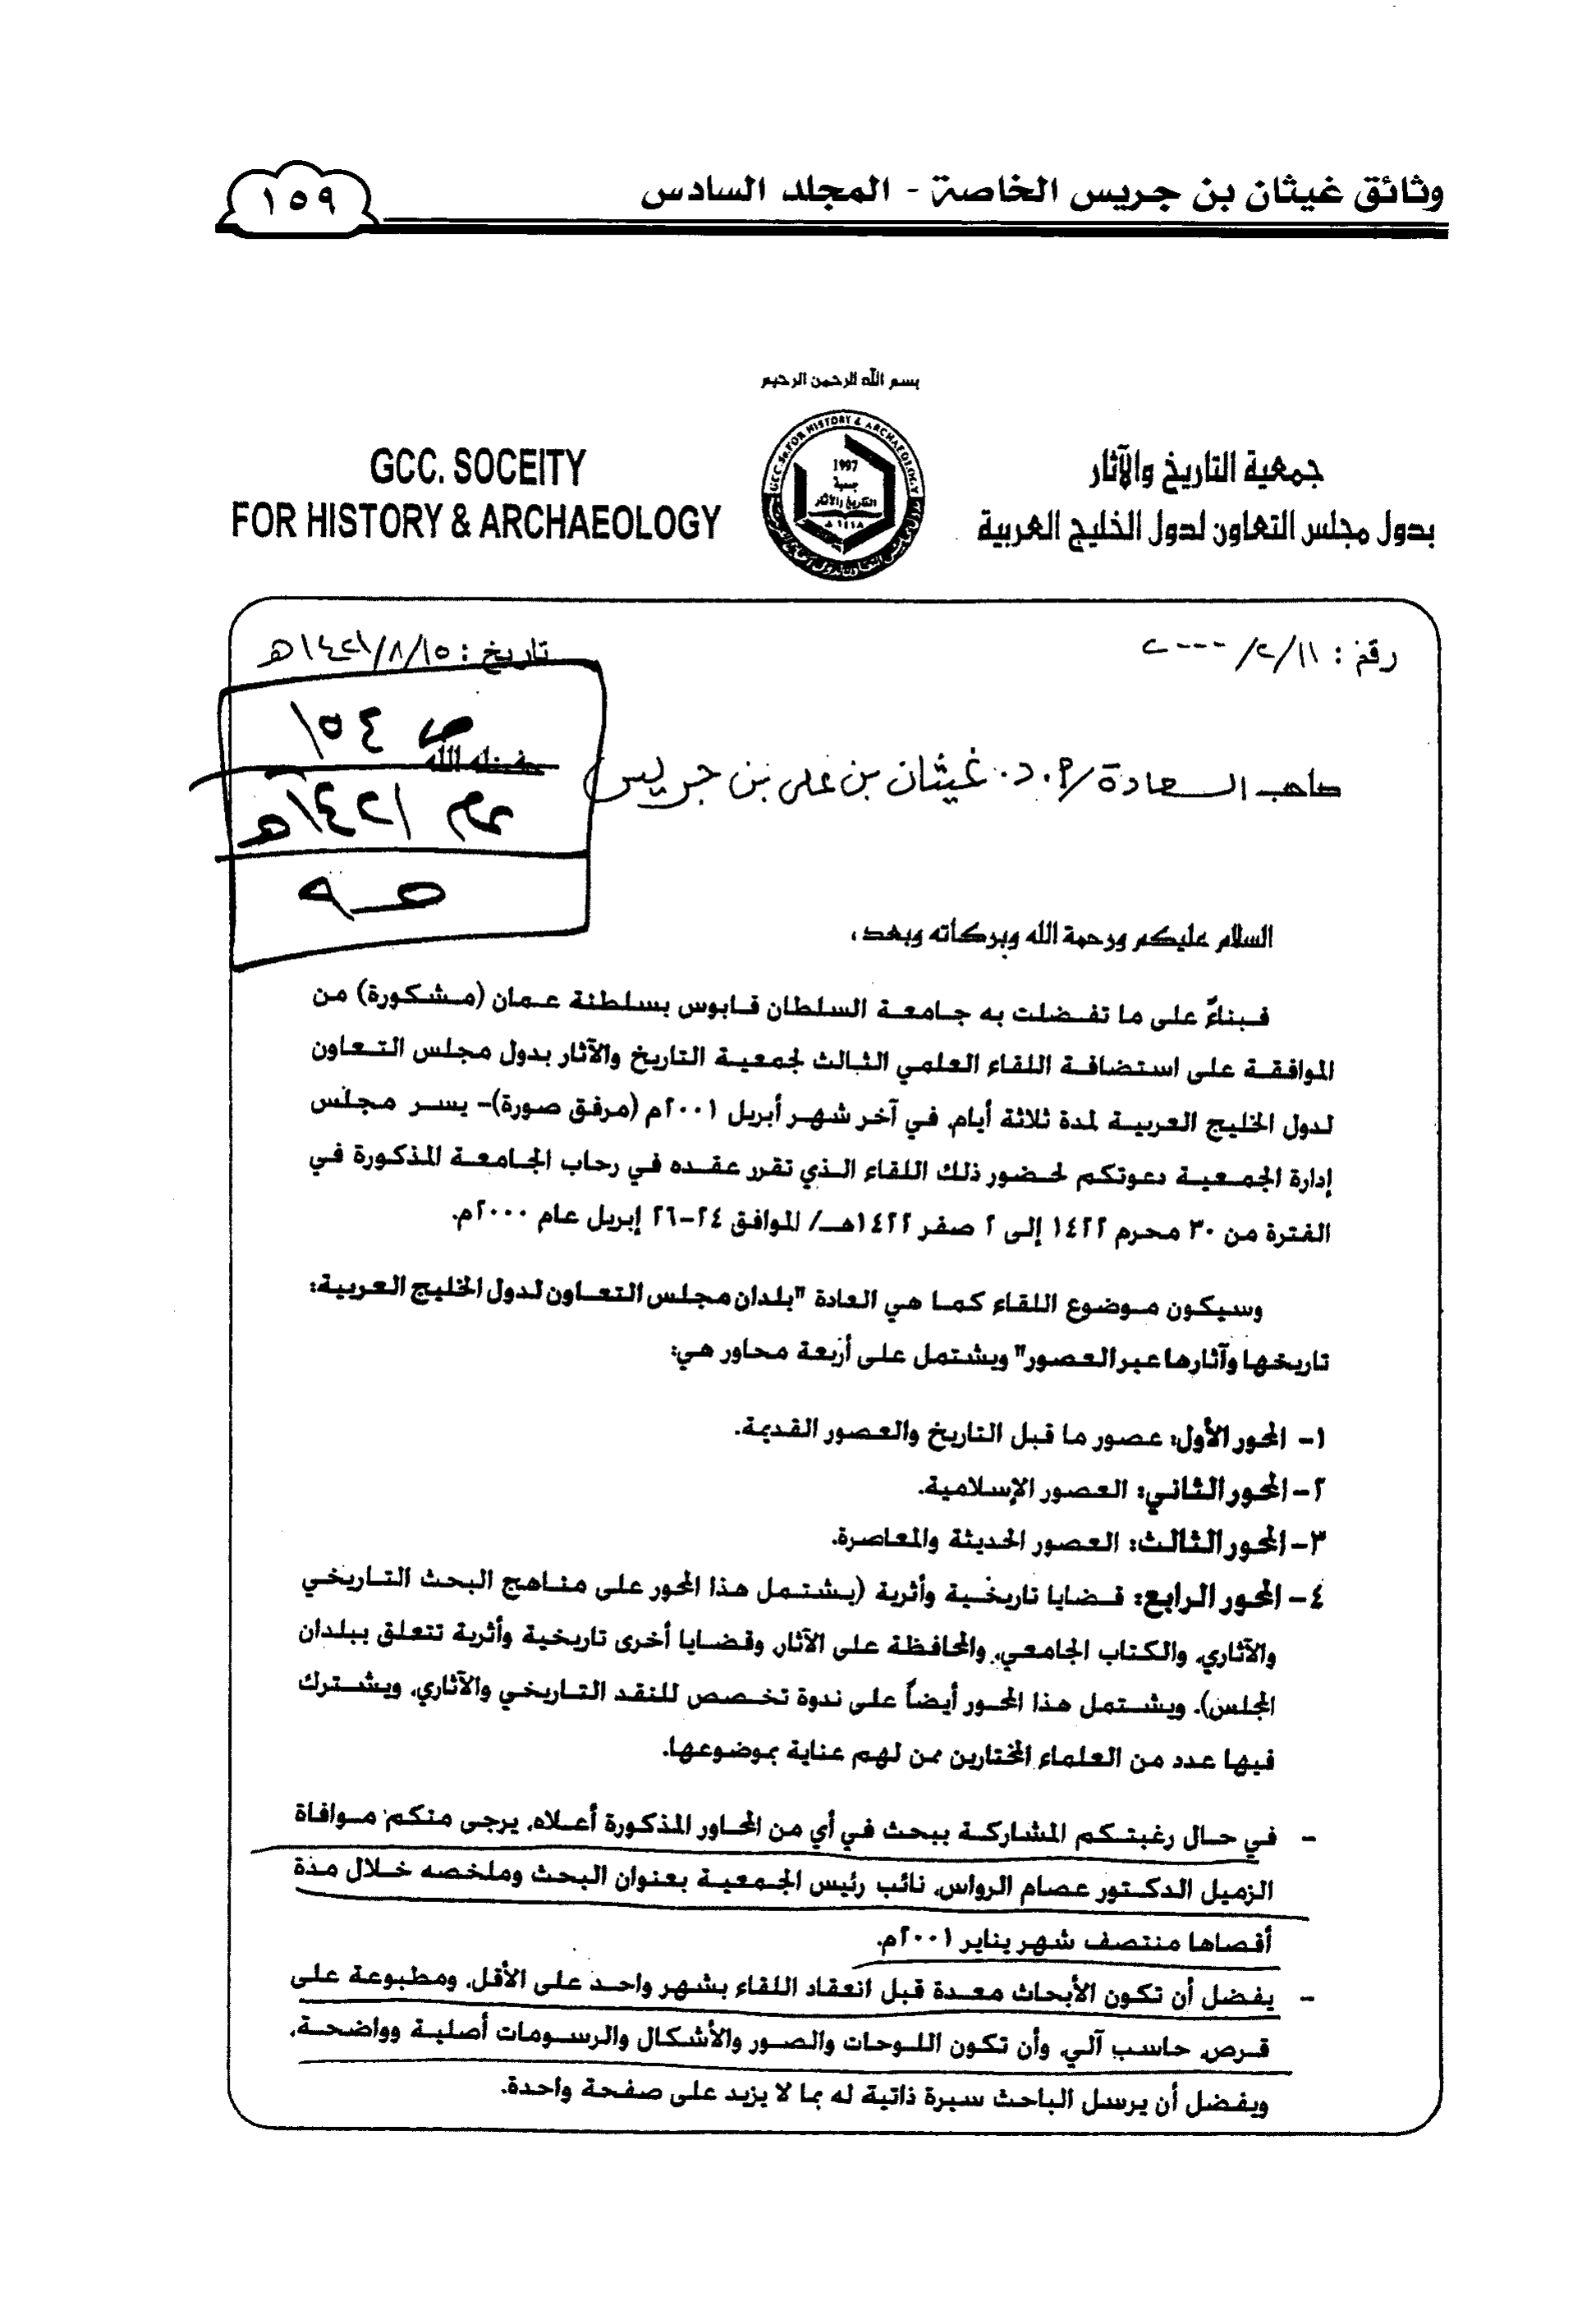 وثائق غيثان بن جريس الخاصة - المجلد السادس
١٥٩
بسم الله الرحمن الرحيم
جمعية التاريخ والآثار
بدول مجلس التعاون لدول الخليج العربية
GCC. SOCEITY
FOR HISTORY & ARCHAEOLOGY
GCC.So.FOR HISTORY & ARCHAEOLOGY
1997
جمعية
التاريخ والآثار
١٤١٨هـ
رقم : ٢٠٠٠/٢/١١
تاريخ : ١٤٢١/٨/١٥هـ
ص ١٥٤
صاحب السعادة/ أ. د. غيثان بن علي بن جريس حفظه الله
١٤٢١هـ
السلام عليكم ورحمة الله وبركاته وبعد ،
فبناءً على ما تفضلت به جامعة السلطان قابوس بسلطنة عمان (مشكورة) من
الموافقة على استضافة اللقاء العلمي الثالث لجمعية التاريخ والآثار بدول مجلس التعاون
لدول الخليج العربية لمدة ثلاثة أيام، في آخر شهر أبريل ٢٠٠١م (مرفق صورة)- يسر مجلس
إدارة الجمعية دعوتكم لحضور ذلك اللقاء الذي تقرر عقده في رحاب الجامعة المذكورة في
الفترة من ٣٠ محرم ١٤٢٢ إلى ٢ صفر ١٤٢٢هـ/ الموافق ٢٤-٢٦ إبريل عام ٢٠٠٠م.
وسيكون موضوع اللقاء كما هي العادة "بلدان مجلس التعاون لدول الخليج العربية:
تاريخها وآثارها عبر العصور" ويشتمل على أربعة محاور هي:
١- المحور الأول: عصور ما قبل التاريخ والعصور القديمة.
٢- المحور الثاني: العصور الإسلامية.
٣- المحور الثالث: العصور الحديثة والمعاصرة.
٤- المحور الرابع: قضايا تاريخية وأثرية (يشتمل هذا المحور على مناهج البحث التاريخي
والآثاري، والكتاب الجامعي، والمحافظة على الآثار، وقضايا أخرى تاريخية وأثرية تتعلق ببلدان
المجلس). ويشتمل هذا المحور أيضاً على ندوة تخصص للنقد التاريخي والآثاري، ويشترك
فيها عدد من العلماء المختارين ممن لهم عناية بموضوعها.
- في حال رغبتكم المشاركة ببحث في أي من المحاور المذكورة أعلاه، يرجى منكم موافاة
الزميل الدكتور عصام الرواس، نائب رئيس الجمعية بعنوان البحث وملخصه خلال مدة
أقصاها منتصف شهر يناير ٢٠٠١م.
- يفضل أن تكون الأبحاث معدة قبل انعقاد اللقاء بشهر واحد على الأقل، ومطبوعة على
قرص، حاسب آلي، وأن تكون اللوحات والصور والأشكال والرسومات أصلية وواضحة،
ويفضل أن يرسل الباحث سيرة ذاتية له بما لا يزيد على صفحة واحدة.